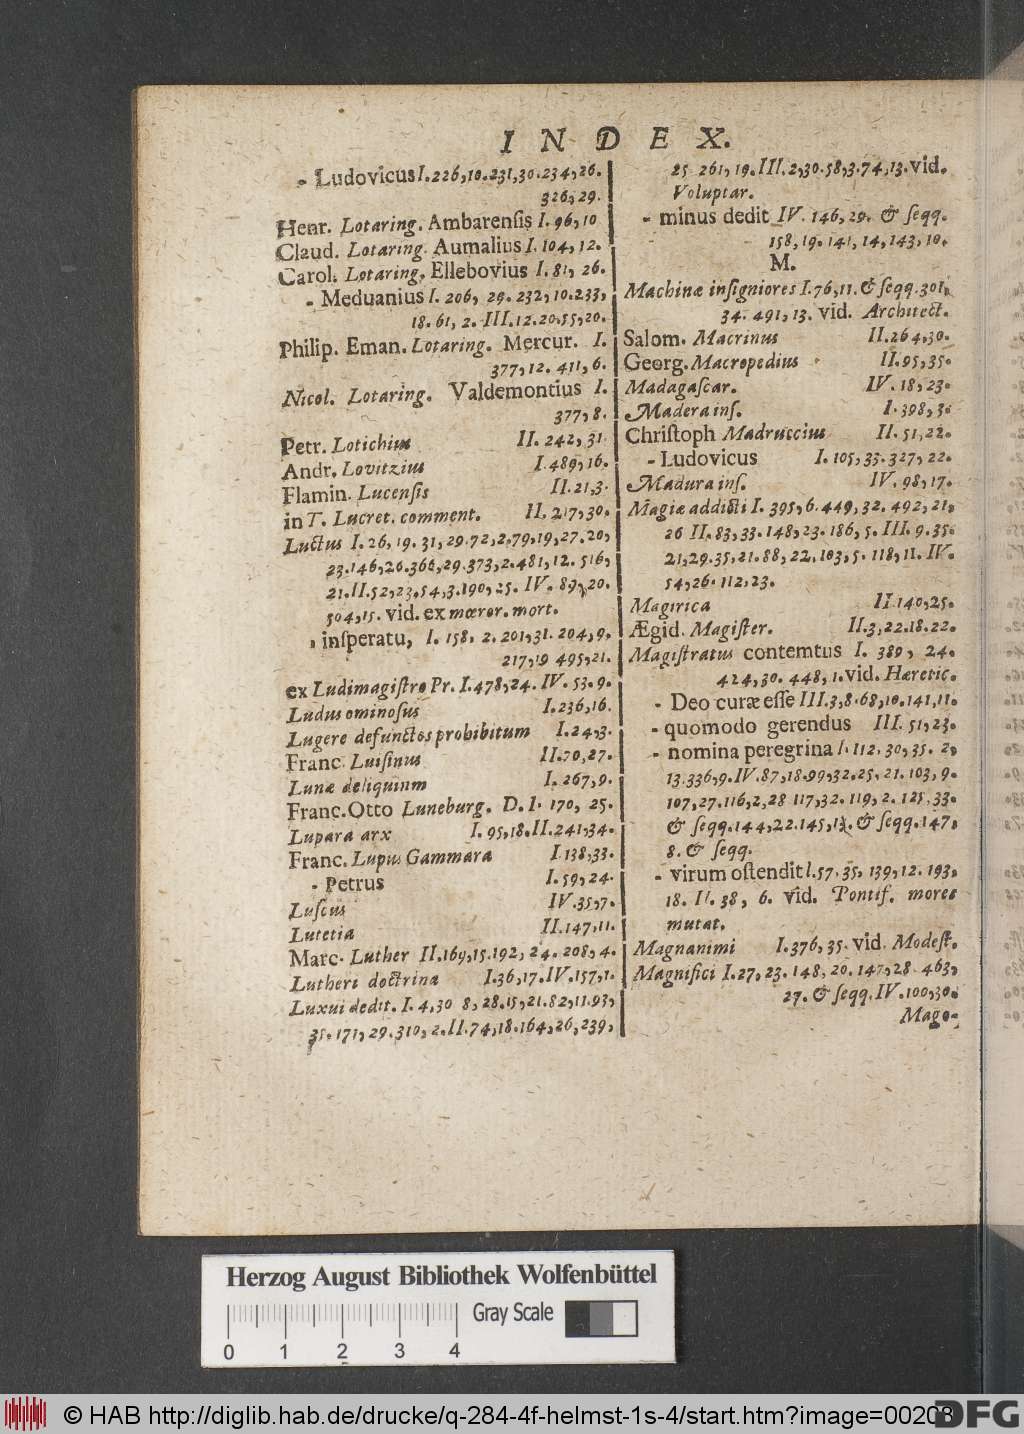 INDEX.
- Ludovicus I. 226, 10. 231, 30. 234, 26.
326, 29.
Henr. Lotaring. Ambarenſis I. 96, 10
Claud. Lotaring. Aumalius I. 104, 12.
Carol. Lotaring. Ellebovius I. 81, 26.
- Meduanius I. 206, 29. 232, 10. 233,
18. 61, 2. III. 12. 20. 55, 20.
Philip. Eman. Lotaring. Mercur. I.
377, 12. 411, 6.
Nicol. Lotaring. Valdemontius I.
377, 8.
Petr. Lotichius II. 242, 31.
Andr. Lovitzius I. 489, 16.
Flamin. Lucenſis II. 21, 3.
in T. Lucret. comment. II. 217, 30.
Luctus I. 26, 19. 31, 29. 72, 2, 79, 19, 27. 20,
23. 146, 26. 366, 29. 373, 2. 481, 12. 516,
21. II. 52, 23, 54, 3. 190, 25. IV. 89, 20.
504, 15. vid. ex mœror. mort.
, inſperatu, I. 158, 2. 201, 31. 204, 9,
217, 19 495, 21.
ex Ludimagiſtro Pr. I. 478, 24. IV. 53. 9.
Ludus ominoſus I. 236, 16.
Lugere defunctos prohibitum I. 24, 3.
Franc. Luiſinus II. 70, 27.
Lunæ deliquium I. 267, 9.
Franc. Otto Luneburg. D. I. 170, 25.
Lupara arx I. 95, 18. II. 241, 34.
Franc. Lupus Gammara I. 138, 33.
- Petrus I. 59, 24.
Luſcus IV. 35, 7.
Lutetia II. 147, 11.
Marc. Luther II. 169, 15. 192, 24. 208, 4.
Lutheri doctrina I. 36, 17. IV. 157, 1.
Luxui dedit. I. 4, 30 8, 28. 15, 21. 82, 11. 93,
35. 171, 29. 310, 2. II. 74, 18. 164, 26, 239,
25 261, 19. III. 2, 30. 58, 3. 74, 13. vid.
Voluptar.
- minus dedit IV. 146, 29. & ſeqq.
158, 19. 141, 14, 143, 10.
M.
Machinæ inſigniores I. 76, 11. & ſeqq. 301,
34. 491, 13. vid. Architect.
Salom. Macrinus II. 264, 30.
Georg. Macropedius II. 95, 35.
Madagaſcar. IV. 18, 23.
Madera inſ. I. 398, 3.
Chriſtoph Madruccius II. 51, 22.
- Ludovicus I. 105, 33. 327, 22.
Madura inſ. IV. 98, 17.
Magiæ addicti I. 395, 6. 449, 32. 492, 21,
26 II. 83, 33. 148, 23. 186, 5. III. 9. 35.
21, 29. 35, 21. 88, 22, 103, 5. 118, 11. IV.
54, 26. 112, 23.
Magirica II. 140, 25.
Ægid. Magiſter. II. 3, 22. 18. 22.
Magiſtratus contemtus I. 389, 24.
424, 30. 448, 1. vid. Hæretic.
- Deo curæ eſſe III. 3, 8. 68, 10. 141, 11.
- quomodo gerendus III. 51, 23.
- nomina peregrina I. 112. 30, 35. 2,
13. 336, 9. IV. 87, 18. 99, 32. 25, 21. 103, 9.
107, 27. 116, 2, 28 117, 32. 119, 2. 125, 33.
& ſeqq. 144, 22. 145, 13. & ſeqq. 147,
8. & ſeqq.
- virum oſtendit I. 57, 35. 139, 12. 193,
18. II. 38, 6. vid. Pontif. mores
mutat.
Magnanimi I. 376, 35. vid. Modeſt.
Magnifici I. 27, 23. 148, 20. 147, 28. 463,
27. & ſeqq. IV. 100, 30.
Mago-
Herzog August Bibliothek Wolfenbüttel
Gray Scale
0 1 2 3 4
© HAB http://diglib.hab.de/drucke/q-284-4f-helmst-1s-4/start.htm?image=00208
DFG